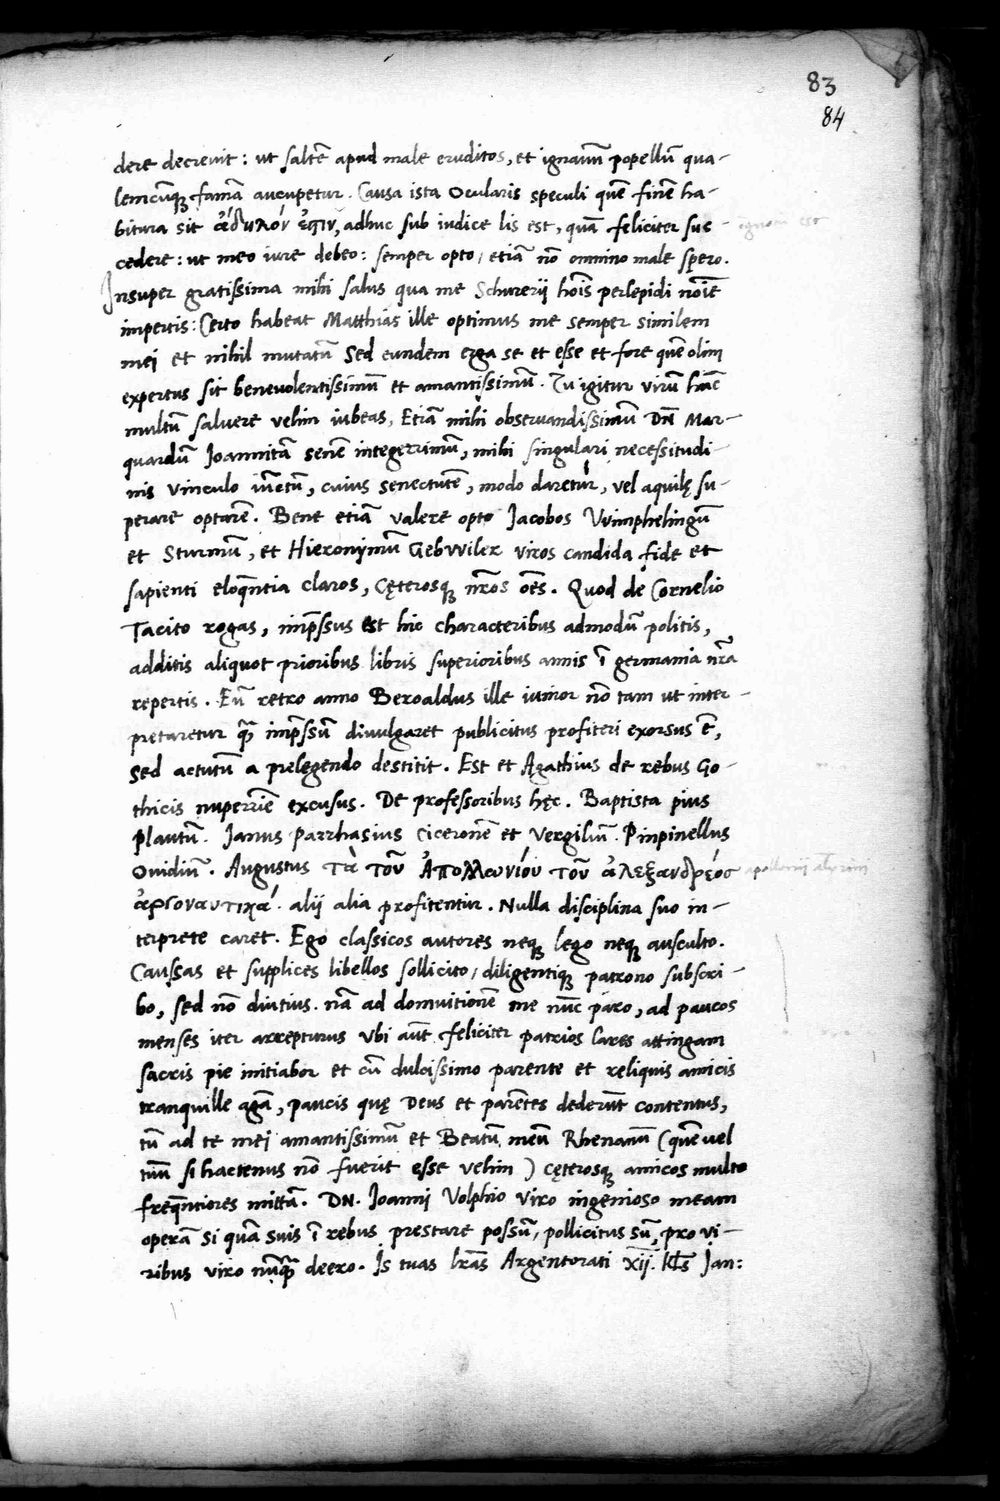 83
84
dere decreuit: ut saltē apud male eruditos, et ignauū popellū qua-
lemcūq; famā aucupetur. Causa ista Ocularis speculi quē finē ha-
bitura sit ἀδηλον ἐστιν, adhuc sub iudice lis est, quā feliciter suc-
cedere: ut meo iure debeo: semper opto, etiā nō omnino male spero.
Insuper gratissima mihi salus qua me Schurerij hoīs perlepidi noīe
impertis: Certo habeat Matthias ille optimus me semper similem
mei et nihil mutatū Sed eundem erga se et esse et fore quē olim
expertus sit beneuolentissimū et amantissimū. Tu igitur virū hūc
multū saluere velim iubeas, Etiā mihi obseruandissimū DN̄ Mar-
quardū Joannitā senē integerrimū, mihi singulari necessitudi-
nis vinculo iūctū, cuius senectutē, modo daretur, vel aquilę su-
perare optarē. Bene etiā valere opto Jacobos Vvimphelingū
et Sturmū, et Hieronymū Gebvviler viros candida fide et
sapienti eloq̄ntia claros, Cęterosq; nr̄os oēs. Quod de Cornelio
Tacito rogas, imp̄ssus est hic characteribus admodū politis,
additis aliquot prioribus libris superioribus annis ī germania nr̄a
repertis. Eū retro anno Beroaldus ille iunior nō tam ut inter-
pretaretur q̄ imp̄ssū diuulgaret publicitus profiteri exorsus ē,
sed actutū a prelegendo destitit. Est et Agathius de rebus Go-
thicis nuperrīe excusus. De professoribus hęc. Baptista pius
Plautū. Janus Parrhasius Ciceronē et Vergiliū. Pinpinellus
Ouidiū. Augustus τὰ τοῦ Ἀπολλωνίου τοῦ ἀλεξανδρέος
ἀργοναυτικά. alij alia profitentur. Nulla disciplina suo in-
terprete caret. Ego classicos autores neq; lego neq; ausculto.
Caussas et supplices libellos sollicito, diligentiq; patrono subscri-
bo, sed nō diutius. nā ad domuitionē me nūc paro, ad paucos
menses iter arrepturus Vbi aūt feliciter patrios lares attingam
sacris pie initiabor et cū dulcissimo parente et reliquis amicis
tranquille agā, paucis quę Deus et parētes dederūt contentus,
tū ad te mei amantissimū et Beatū meū Rhenanū (quē uel
tuū si hactenus nō fuerit esse velim) cęterosq; amicos multo
freq̄ntiores mittā. DN. Joanni Volphio viro ingenioso meam
operā si quā suis ī rebus prestare possū, pollicitus sū, pro vi-
ribus viro nūq̄ deero. Is tuas lr̄as Argentorati xij. kl̄s Jan: